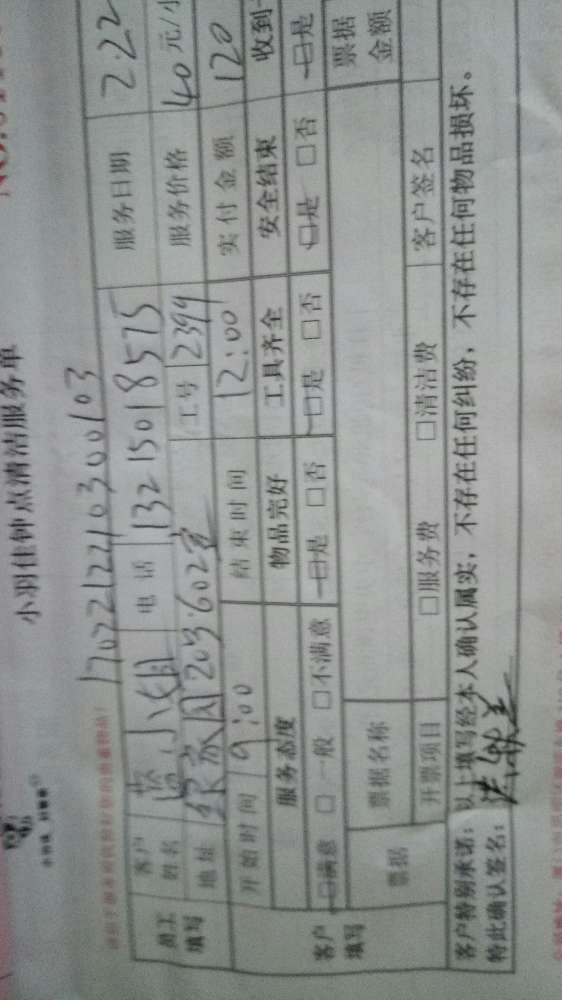 小羽佳钟点清洁服务单
1702212210300103
员工填写
客户姓名 蓝小姐 电话 13215018575 服务日期 2.22
地址 203.602室 工号 2399 服务价格 40元/
开始时间 9:00 结束时间 12:00 实付金额 120
客户填写
服务态度 物品完好 工具齐全 安全结束 收到
□满意 □一般 □不满意 □是 □否 □是 □否 □是 □否 □是
票据 票据名称 票据金额
开票项目 □服务费 □清洁费 客户签名
客户特别承诺：以上填写经本人确认属实，不存在任何纠纷，不存在任何物品损坏。
特此确认签名：